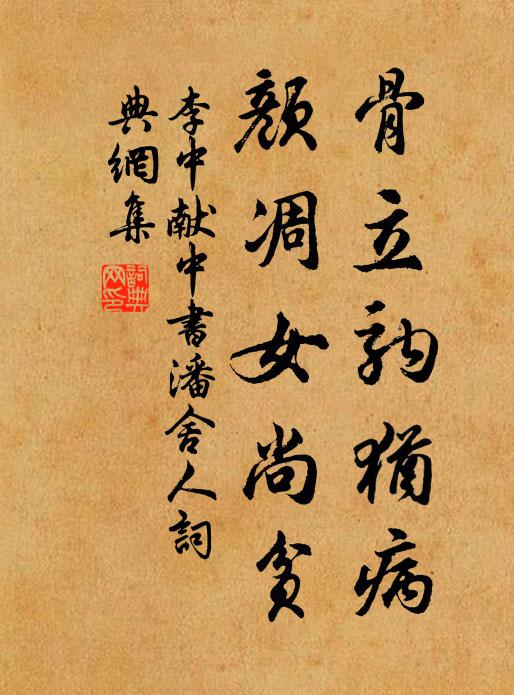 骨立駒猶病
顏凋女尚貧
李中献中書潘舍人詞
典網集
詞典
网印